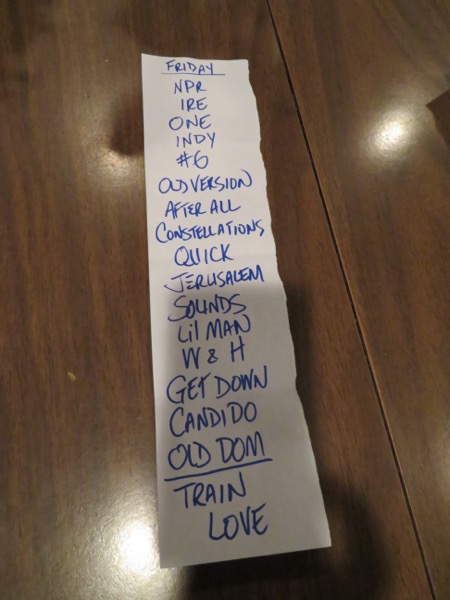 FRIDAY
NPR
IRE
ONE
INDY
#6
OLD VERSION
AFTER ALL
CONSTELLATIONS
QUICK
JERUSALEM
SOUNDS
Lil MAN
W & H
GET DOWN
CANDIDO
OLD DOM
TRAIN
LOVE